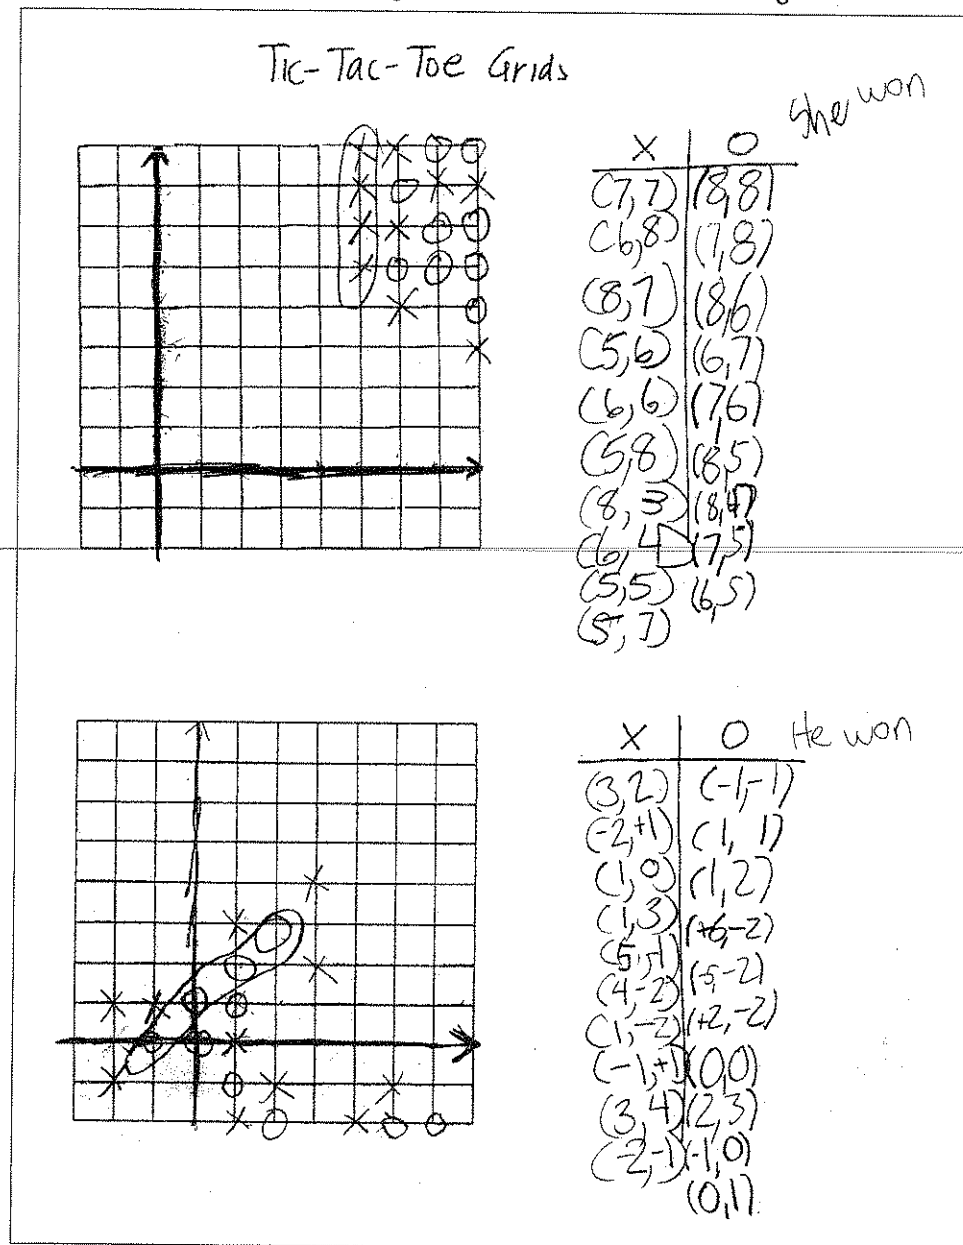 Tic-Tac-Toe Grids
She won
X O
(7,7) (8,8)
(6,8) (7,8)
(8,7) (8,6)
(5,6) (6,7)
(6,6) (7,6)
(5,8) (8,5)
(8,3) (8,4)
(6,4) (7,5)
(5,5) (6,5)
(5,7)
X O He won
(3,2) (-1,-1)
(-2,+1) (1, 1)
(1,0) (1,2)
(1,3) (+6,-2)
(5,-1) (5,-2)
(4,-2) (+2,-2)
(1,-2) (0,0)
(-1,+1) (2,3)
(3,4) (-1,0)
(-2,-1) (0,1)